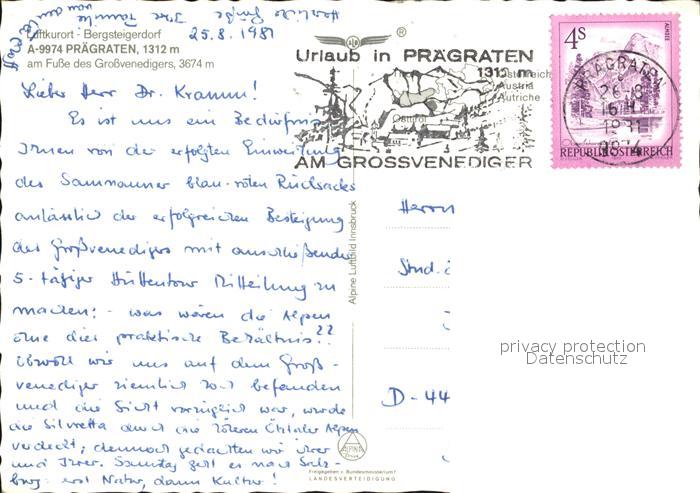 Herzliche Grüße Ihre Familie
von den
25.8.1981
Luftkurort - Bergsteigerdorf
A-9974 PRÄGRATEN, 1312 m
am Fuße des Großvenedigers, 3674 m
Urlaub in PRÄGRATEN
1312 m
Österreich
Austria
Autriche
Osttirol
AM GROSSVENEDIGER
4S
ALMSEE
REPUBLIK ÖSTERREICH
PRÄGRATEN
26.8
1981
9974
Lieber Herr Dr. Kramm!
Es ist uns ein Bedürfnis
Ihnen von der erfolgten Einweihung
des Samnauner blau-roten Rucksacks
anlässlich der erfolgreichen Besteigung
des Großvenedigers mit anschließender
5-tägiger Hüttentour Mitteilung zu
machen: - was wären die Alpen
ohne dies praktische Behältnis!?
Obwohl wir uns auf dem Groß-
venediger ziemlich hoch befanden
und die Sicht vorzüglich war, wurde
die Silvretta durch die höheren Ötztaler Alpen
verdeckt; dennoch gedachten wir Ihrer
und Ihrer. Samstag geht es nach Salz-
burg: erst Natur, dann Kultur!
Alpine Luftbild Innsbruck
Herrn
Stud.
D-44
privacy protection
Datenschutz
ALPINE
Freigegeben v. Bundesministerium f.
LANDESVERTEIDIGUNG